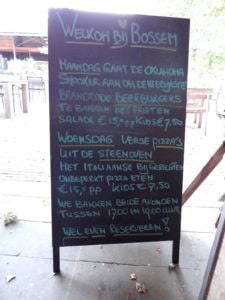 WELKOM BIJ BOSSEM
MAANDAG GAAT DE OKLAHOMA
SMOKER AAN OM DE HEERLIJKSTE
BRANDRODE BEEFBURGERS
TE BAKKEN MET FRIETEN
SALADE €15,- PP KIDS €7,50
WOENSDAG VERSE PIZZA'S
UIT DE STEENOVEN
HET ITALIAANSE BIJ GEBLUTEN
ONBEPERKT PIZZA ETEN
€15,- PP KIDS €7,50
WE BAKKEN BEIDE AVONDEN
TUSSEN 17.00 EN 19.00 UUR
WEL EVEN RESERVEREN!